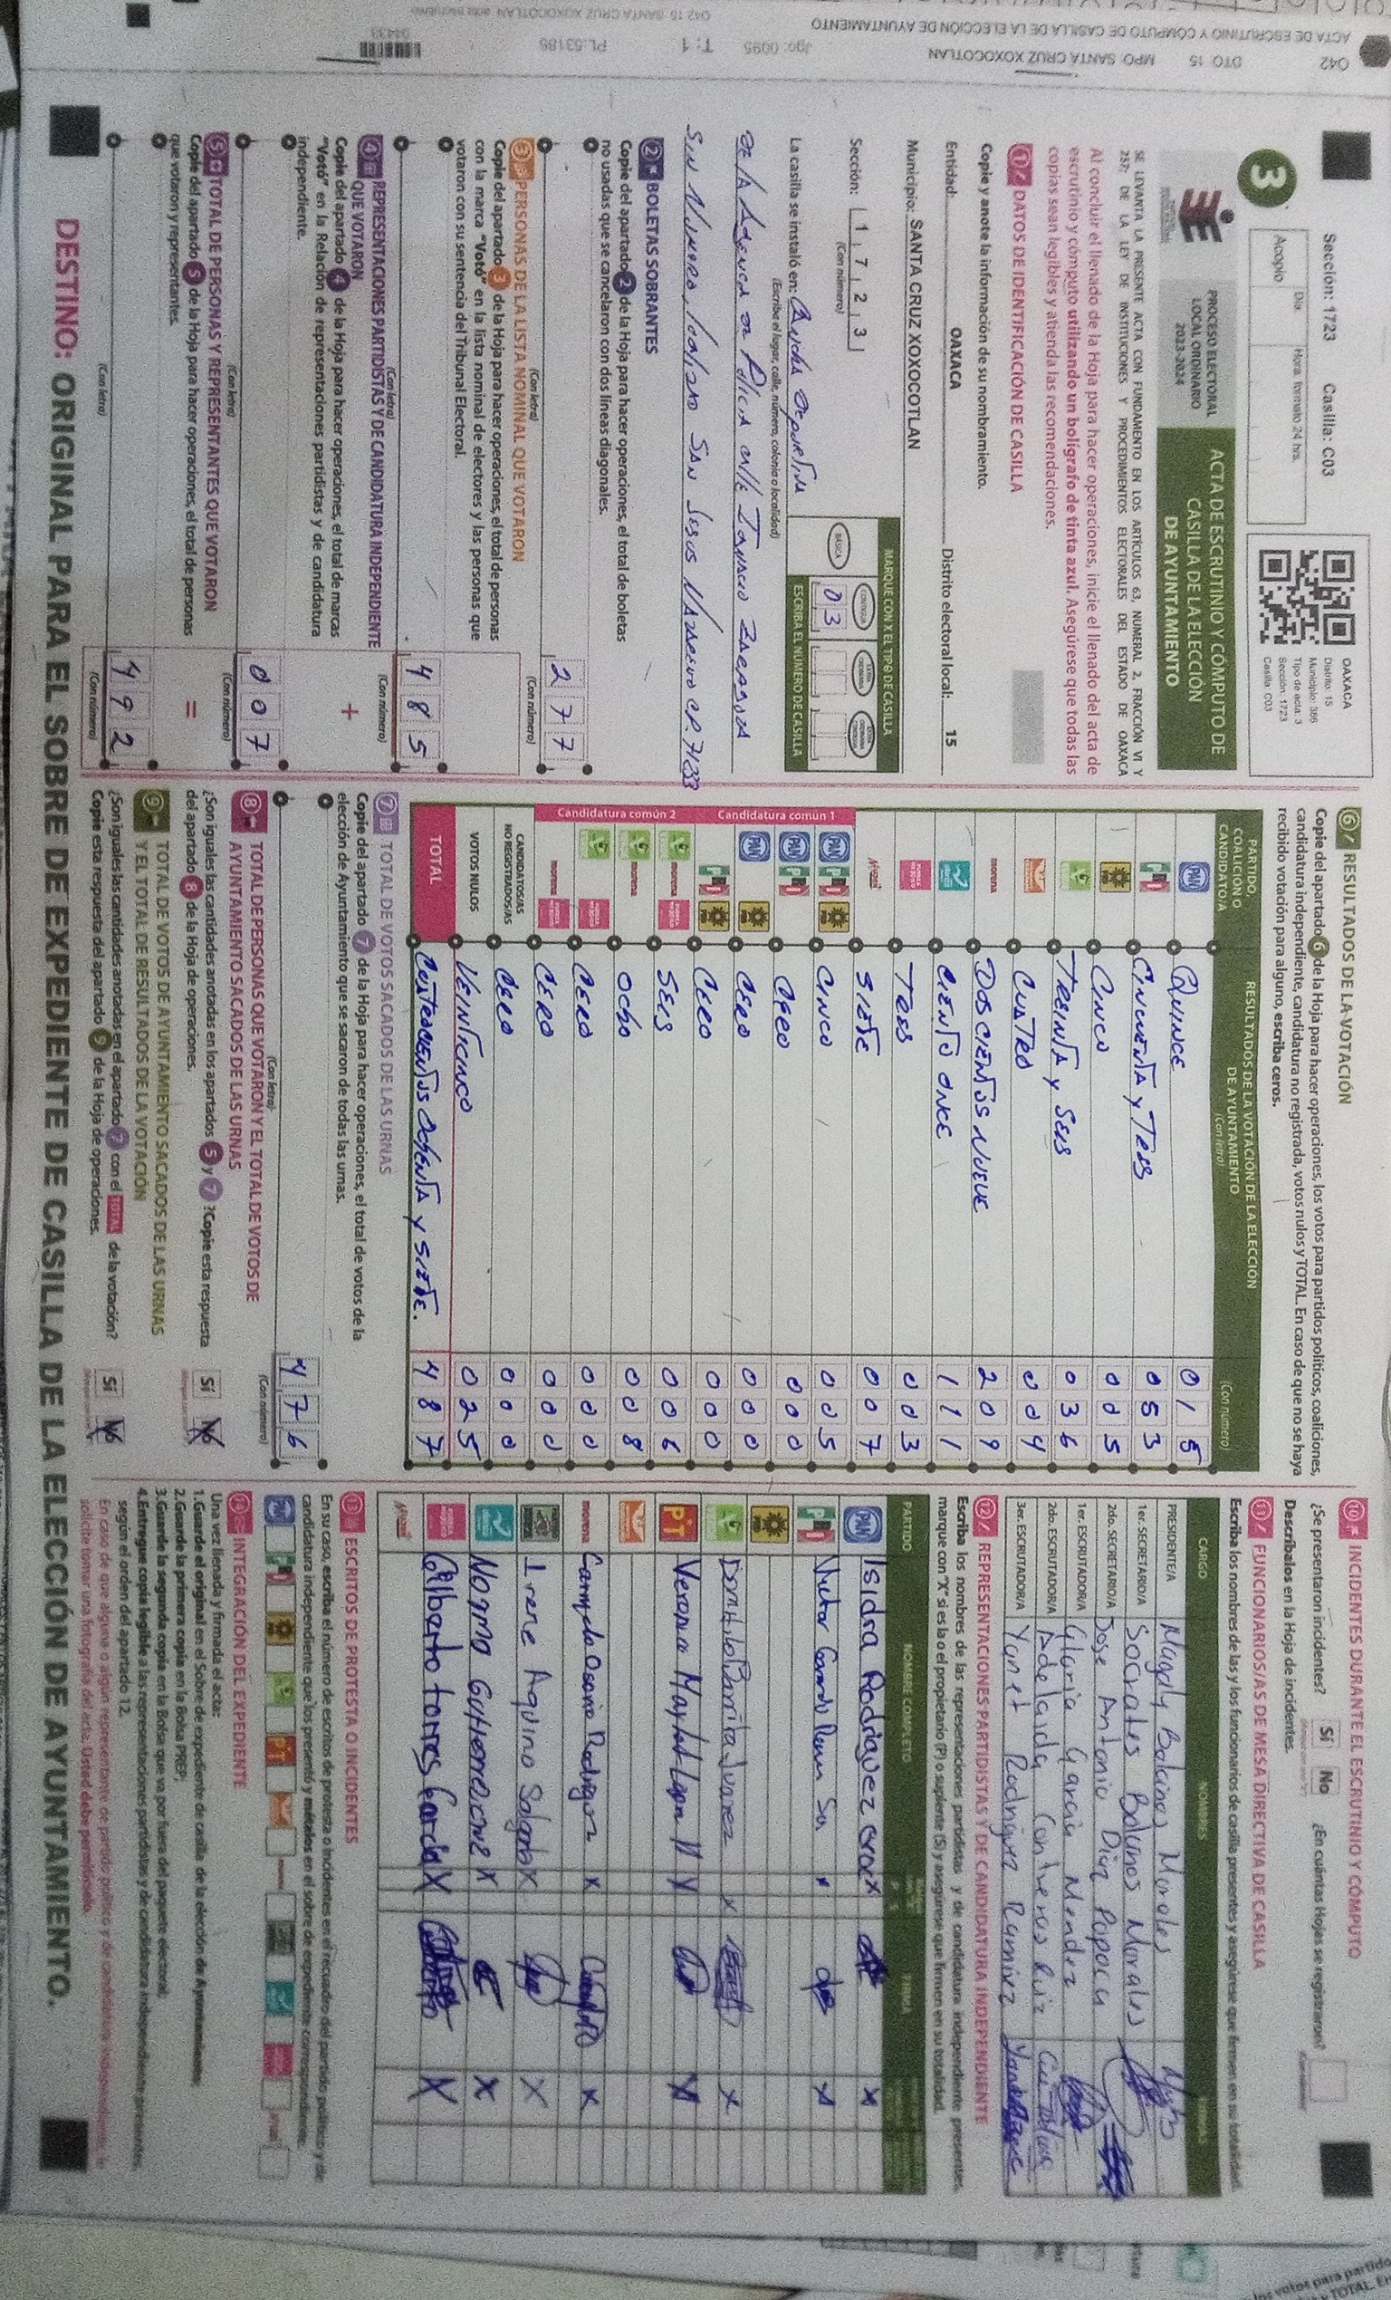 Sección: 1723 Casilla: C03
3
Acopio
Día
Hora, formato 24 hrs.
OAXACA
Distrito: 15
Municipio: 386
Tipo de acta: 3
Sección: 1723
Casilla: C03
PROCESO ELECTORAL
LOCAL ORDINARIO
2023-2024
ACTA DE ESCRUTINIO Y CÓMPUTO DE
CASILLA DE LA ELECCIÓN
DE AYUNTAMIENTO
SE LEVANTA LA PRESENTE ACTA CON FUNDAMENTO EN LOS ARTÍCULOS 63, NUMERAL 2, FRACCIÓN VI Y
257; DE LA LEY DE INSTITUCIONES Y PROCEDIMIENTOS ELECTORALES DEL ESTADO DE OAXACA
Al concluir el llenado de la Hoja para hacer operaciones, inicie el llenado del acta de
escrutinio y cómputo utilizando un bolígrafo de tinta azul. Asegúrese que todas las
copias sean legibles y atienda las recomendaciones.
1 DATOS DE IDENTIFICACIÓN DE CASILLA
Copie y anote la información de su nombramiento.
Entidad: OAXACA Distrito electoral local: 15
Municipio: SANTA CRUZ XOXOCOTLAN
Sección: 1 7 2 3
(Con número)
MARQUE CON X EL TIPO DE CASILLA
BÁSICA
CONTIGUA
03
ESCRIBA EL NÚMERO DE CASILLA
La casilla se instaló en:
(Escriba el lugar, calle, número, colonia o localidad)
2 BOLETAS SOBRANTES
Copie del apartado 2 de la Hoja para hacer operaciones, el total de boletas
no usadas que se cancelaron con dos líneas diagonales.
2 7 7
(Con letra)
(Con número)
3 PERSONAS DE LA LISTA NOMINAL QUE VOTARON
Copie del apartado 3 de la Hoja para hacer operaciones, el total de personas
con la marca "Votó" en la lista nominal de electores y las personas que
votaron con su sentencia del Tribunal Electoral.
4 8 5
(Con letra)
(Con número)
4 REPRESENTACIONES PARTIDISTAS Y DE CANDIDATURA INDEPENDIENTE
QUE VOTARON
Copie del apartado 4 de la Hoja para hacer operaciones, el total de marcas
"Votó" en la Relación de representaciones partidistas y de candidatura
independiente.
+
0 0 7
(Con letra)
(Con número)
5 TOTAL DE PERSONAS Y REPRESENTANTES QUE VOTARON
Copie del apartado 5 de la Hoja para hacer operaciones, el total de personas
que votaron y representantes.
=
4 9 2
(Con letra)
(Con número)
6 RESULTADOS DE LA VOTACIÓN
Copie del apartado 6 de la Hoja para hacer operaciones, los votos para partidos políticos, coaliciones,
candidatura independiente, candidatura no registrada, votos nulos y TOTAL. En caso de que no se haya
recibido votación para alguno, escriba ceros.
PARTIDO,
COALICIÓN O
CANDIDATO/A
RESULTADOS DE LA VOTACIÓN DE LA ELECCIÓN
DE AYUNTAMIENTO
(Con letra)
(Con número)
PAN QUINCE 0 1 5
PRI CINCUENTA Y TRES 0 5 3
PRD CINCO 0 0 5
TREINTA Y SEIS 0 3 6
CUATRO 0 0 4
morena DOSCIENTOS NUEVE 2 0 9
CIENTO ONCE 1 1 1
TRES 0 0 3
SIETE 0 0 7
Candidatura común 1
PAN PRI PRD CINCO 0 0 5
PAN PRI CERO 0 0 0
PAN PRD CERO 0 0 0
PRI PRD CERO 0 0 0
Candidatura común 2
morena SEIS 0 0 6
morena OCHO 0 0 8
CERO 0 0 0
morena CERO 0 0 0
CANDIDATOS/AS
NO REGISTRADOS/AS CERO 0 0 0
VOTOS NULOS VEINTICINCO 0 2 5
TOTAL CUATROCIENTOS OCHENTA Y SIETE. 4 8 7
7 TOTAL DE VOTOS SACADOS DE LAS URNAS
Copie del apartado 7 de la Hoja para hacer operaciones, el total de votos de la
elección de Ayuntamiento que se sacaron de todas las urnas.
4 7 6
(Con letra)
(Con número)
8 TOTAL DE PERSONAS QUE VOTARON Y EL TOTAL DE VOTOS DE
AYUNTAMIENTO SACADOS DE LAS URNAS
¿Son iguales las cantidades anotadas en los apartados 5 y 7 ? Copie esta respuesta
del apartado 8 de la Hoja de operaciones.
Sí No
9 TOTAL DE VOTOS DE AYUNTAMIENTO SACADOS DE LAS URNAS
Y EL TOTAL DE RESULTADOS DE LA VOTACIÓN
¿Son iguales las cantidades anotadas en el apartado 7 con el TOTAL de la votación?
Copie esta respuesta del apartado 9 de la Hoja de operaciones.
Sí No
10 INCIDENTES DURANTE EL ESCRUTINIO Y CÓMPUTO
¿Se presentaron incidentes? Sí No ¿En cuántas Hojas se registraron?
Descríbalos en la Hoja de incidentes.
11 FUNCIONARIOS/AS DE MESA DIRECTIVA DE CASILLA
Escriba los nombres de las y los funcionarios de casilla presentes y asegúrese que firmen en su totalidad.
CARGO NOMBRES FIRMAS
PRESIDENTE/A Magaly Bolaños Morales
1er. SECRETARIO/A Socrates Bolaños Morales
2do. SECRETARIO/A Jose Antonio Diaz Papoca
1er. ESCRUTADOR/A Gloria Garcia Mendez
2do. ESCRUTADOR/A Adelaida Contreras Ruiz
3er. ESCRUTADOR/A Yanet Rodriguez Ramirez
12 REPRESENTACIONES PARTIDISTAS Y DE CANDIDATURA INDEPENDIENTE
Escriba los nombres de las representaciones partidistas y de candidatura independiente presentes,
marque con "X" si es la o el propietario (P) o suplente (S) y asegúrese que firmen en su totalidad.
PARTIDO NOMBRE COMPLETO FIRMA
PAN Isidra Rodriguez cruz X X
PRI X X
PRD
Juarez X X
PT Veronica X X
morena Carmela Osorio Rodriguez X X
Irene Aquino Salgado X X
Norma Gutierrez X X
Gilberto torres Garcia X X
13 ESCRITOS DE PROTESTA O INCIDENTES
En su caso, escriba el número de escritos de protesta o incidentes en el recuadro del partido político y de
candidatura independiente que los presentó y métalos en el sobre de expediente correspondiente.
14 INTEGRACIÓN DEL EXPEDIENTE
Una vez llenada y firmada el acta:
1. Guarde el original en el Sobre de expediente de casilla de la elección de Ayuntamiento;
2. Guarde la primera copia en la Bolsa PREP;
3. Guarde la segunda copia en la Bolsa que va por fuera del paquete electoral;
4. Entregue copia legible a las representaciones partidistas y de candidatura independiente presentes,
según el orden del apartado 12.
En caso de que alguna o algún representante de partido político y de candidatura independiente, le
solicite tomar una fotografía del acta. Usted debe permitírselo.
DESTINO: ORIGINAL PARA EL SOBRE DE EXPEDIENTE DE CASILLA DE LA ELECCIÓN DE AYUNTAMIENTO.
042 DTO 15 MPO SANTA CRUZ XOXOCOTLAN
ACTA DE ESCRUTINIO Y CÓMPUTO DE CASILLA DE LA ELECCIÓN DE AYUNTAMIENTO
Jgo: 0095 T: 1 PL:53186